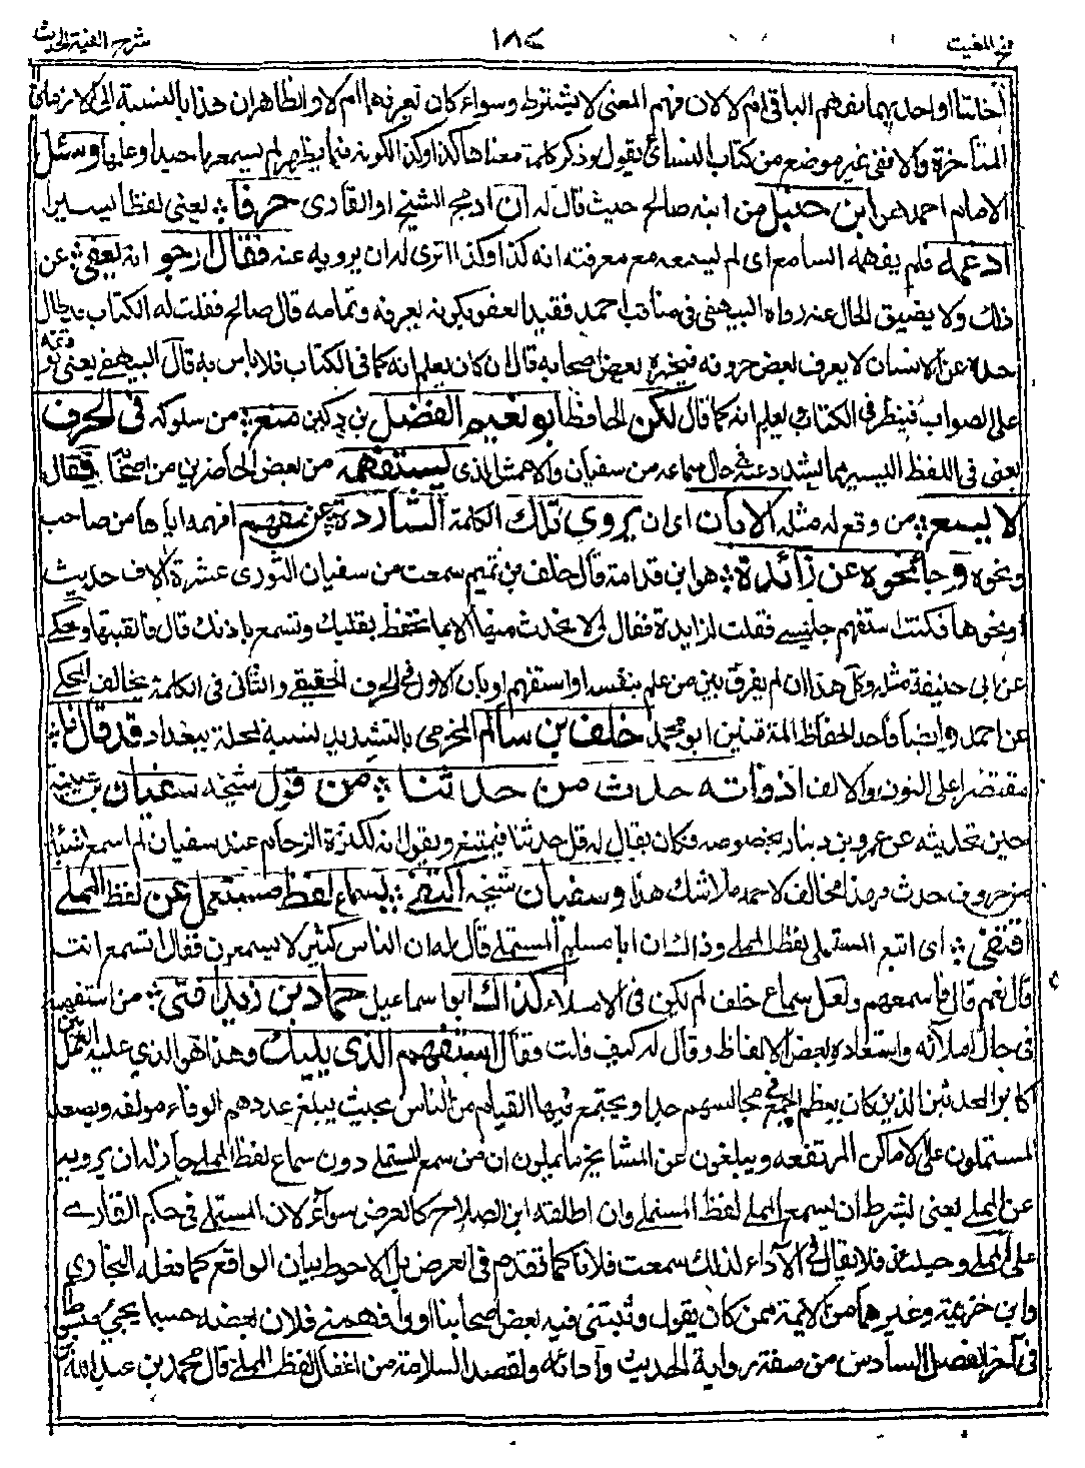 فتح المغيث
١٨٤
شرح الفية الحديث
أخلتا او احديهما بفهم الباقي ام لا لان فهم المعنى لا يشترط وسواء كان يعرفهما ام لا والظاهر ان هذا بالنسبة الى الازمان
المتأخرة والا ففي غير موضع من كتاب النسائي يقول وذكر كلمة معناها كذا وكذا لكونه فيما يظهر لم يسمعها جيدا وعلمها وسئل
الامام احمد عن ابن حنبل من ابنه صالح حيث قال له ان ادمج الشيخ او القارى حرفا يعني لفظا يسيرا
ادغمه فلم يفهمه السامع اى لم يسمعه مع معرفته انه كذا وكذا اترى له ان يرويه عنه فقال ارجو انه يعفى عن
ذلك ولا يضيق الحال عنه رواه البيهقي في مناقب احمد فقيد العفو بكونه يعرفه وتمامه قال صالح فقلت له الكتاب قد طال
عهده عن الانسان لا يعرف بعض حروفه فيخبره بعض اصحابه قال ان كان يعلم انه كما في الكتاب فلا باس به قال البيهقي يعني
على الصواب فينظر في الكتاب ويعلم انه كما قال لكن الحافظ ابو نعيم الفضل بن دكين منع من سلوكه في الحرف
يعني في اللفظ اليسير مما يشد عنه في حال سماعه من سفيان والاعمش الذى يستفهمه من بعض الحاضرين من اصحابه فقال
لا يسع من وقع له مثله الا بان اى ان يروي تلك الكلمة الشاردة عن مفهم افهمه اياها من صاحب
ونحوه وجا نحوه عن زائدة هو ابن قدامة قال خلف بن تميم سمعت من سفيان الثورى عشرة الاف حديث
او نحوها فكنت استفهم جليسي فقلت لزايدة فقال لي لا تحدث منها الا بما تحفظ بقلبك وتسمع باذنك قال فالقيتها وحكى
عن ابي حنيفة مثله وكل هذا ان لم يفرق بين من علم بنفسه او استفهم او بان الاول في الحرف الحقيقي والثاني في الكلمة يخالف المحكي
عن احمد وايضا فاحد الحفاظ المتقنين ابو محمد خلف بن سالم المخرمي بالتشديد نسبة لمحلة ببغداد قد قال نا
مقتصرا على النون والالف اذ فاته حدث من حدثنا من قول شيخه سفيان بن عيينة
حين تحديثه عن عمرو بن دينار بخصوصه فكان يقال له قل حدثنا فيمتنع ويقول انه لكثرة الزحام عند سفيان لم اسمع شيئا
من حروف حدث فهذا مخالف لاحمد بلا شك هذا وسفيان شيخه اكتفى بسماع لفظ مستمل عن لفظ المملي
اقتفى اى اتبع المستملي لفظ المملي وذلك ان ابا مسلم المستملي قال له ان الناس كثير لا يسمعون فقال اتسمع انت
قال نعم قال فاسمعهم ولعل سماع خلف لم يكن في الاملاء كذاك ابو اسماعيل حماد بن زيد افتى من استفهمه
في حال املائه واستعاده بعض الالفاظ وقال له كيف قلت فقال استفهم الذى يليك وهذا هو الذي عليه العمل بين
اكابر المحدثين الذين كان يعظم الجمع في مجالسهم جدا ويجتمع فيها القيام من الناس بحيث يبلغ عددهم الوفا مولفه ويصعد
المستملون على الاماكن المرتفعه ويبلغون عن المشايخ ما يملون ان من سمع المستملي دون سماع لفظ المملي جاز له ان يرويه
عن المملي يعني بشرط ان يسمع المملي لفظ المستملي وان اطلقه ابن الصلاح كالعرض سواء لان المستملي في حكم القارى
على المملي وحينئذ فلا يقال في الاداء لذلك سمعت فلانا كما تقدم في العرض بل الاحوط بيان الواقع كما فعله البخاري
وابن خزيمة وغيرهما من الائمة ممن كان يقول وثبتني فيه بعض اصحابنا او وافهمني فلان بعضه حسبما يجئ مبسوطا
في آخر الفصل السادس من صفة رواية الحديث وآدائه ولقصد السلامة من اغفال لفظ المملي قال محمد بن عبد الله بن